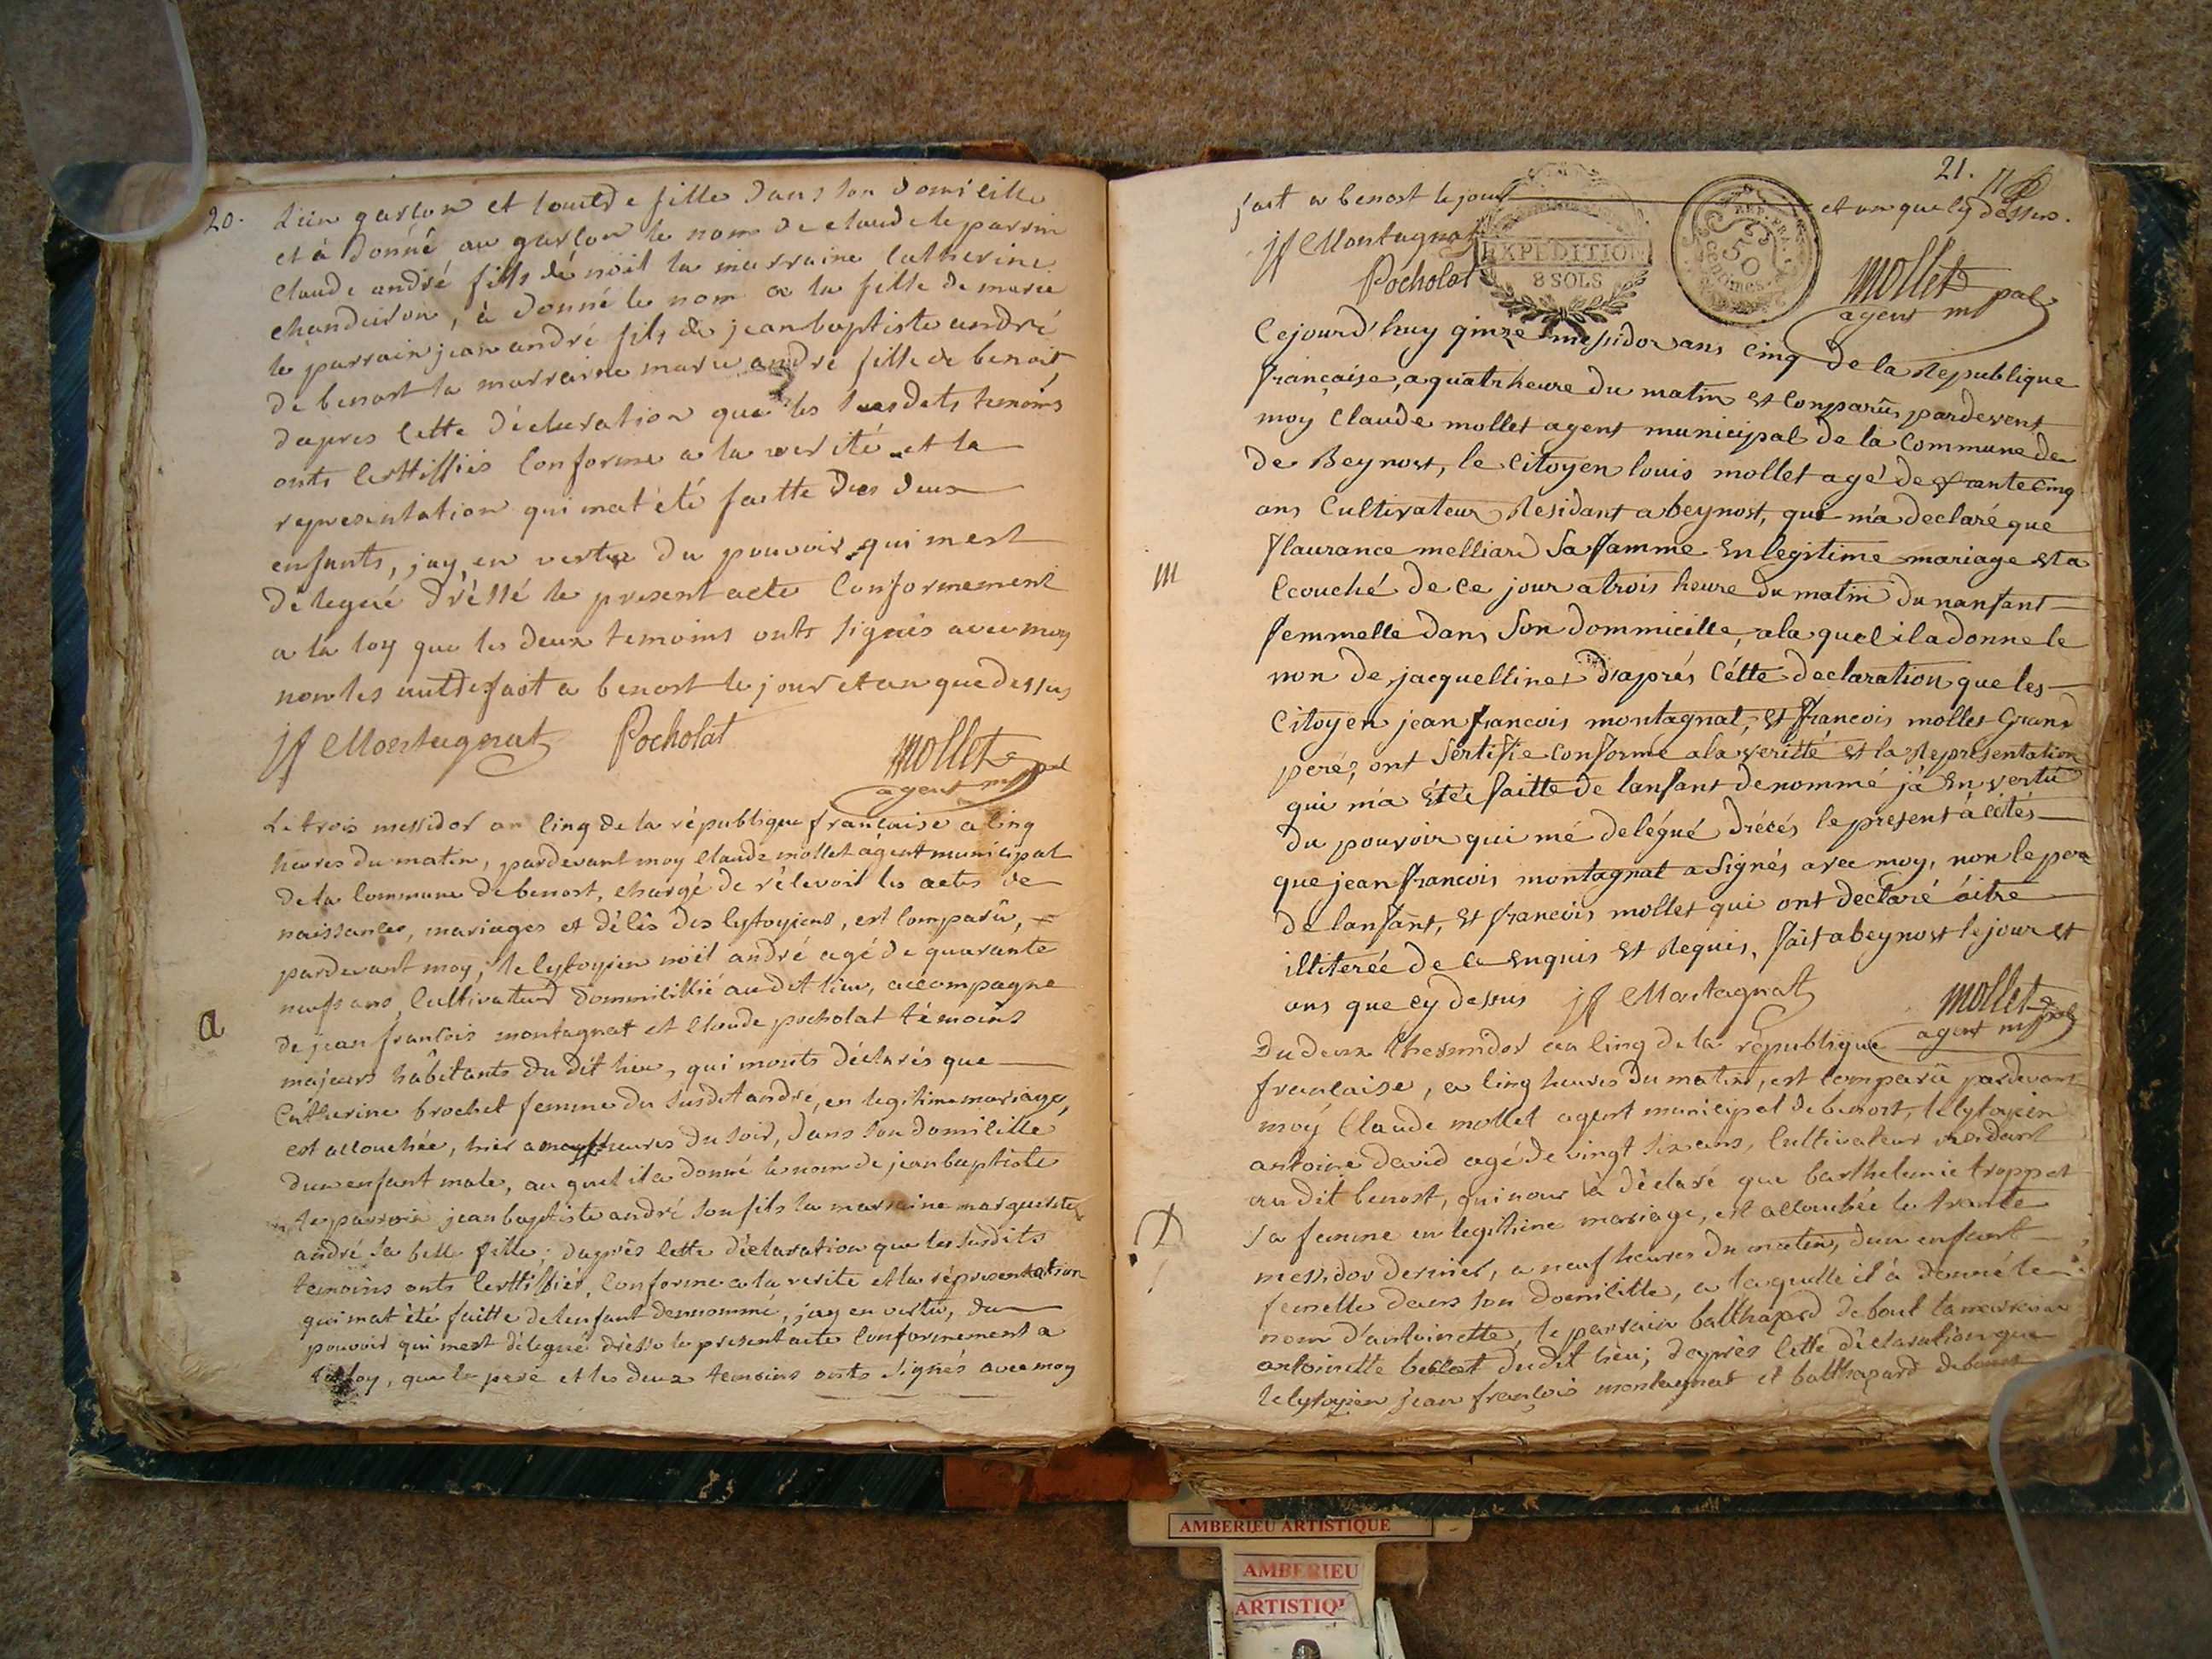 20.
d'un garçon et l'outre fille dans son domicille
et à donné au garçon le nom de claude le parrin
claude andré fils de nöil la marraine Catherine
chanduiron, à donné le nom a la fille de marie
le parrain jean andré fils de jean baptiste andré
de benost la marraine marie andré fille de benoit
dapres cette déclaration que les susdits temoins
onts certtiffiés conforme a la verité et la
representation qui mat été faitte des deux
enfants, jay, en vertu du pouvoir qui mest
delegué dréssé le present acte Conformement
a la loy que les deux temoins onts signés avec moy
non les autres fait a benost le jour et an que dessus
jf Montagnat Pocholat mollet
agent mpal
Le trois messidor an cinq de la république française a cinq
heures du matin, pardevant moy Claude mollet agent municipal
de la Commune de benost, chargé de rélevoir les actes de
naissances, mariages et décès des cytoyiens, est comparû,
pardevant moy, le cytoyien nöel andré agé de quarante
neufs ans, Cultivateur dommicillié au dit lieu, accompagne
de jean francois montagnat et Claude pocholat témoins
majeurs habitants du dit lieu, qui monts déclarés que
Catherine brochet femme du susdit andré, en legitime mariage,
est accouchée, hier a neuf heures du soir, dans son domicille
dun enfant male, au quel il a donné le nom de jean baptiste
le parrain jean baptiste andré son fils la marraine marguerite
andré sa belle fille; dapres cette déclaration que les susdits
temoins onts certtiffiés, conforme a la verite et la représentation
qui mat été faitte de lenfant dennommé, jay en vertu, du
pouvoir qui mest délegué dréssé le present acte conformement a
la loy, que le pere et les deux temoins onts signés avec moy
a
21.
fait a benost le jour et an que cy dessus.
EXPEDITION
8 SOLS
REP. FRA.
50
Centimes
jf Montagnat
Pocholat
mollet
agent mpal
Cejourd'huy qinze messidor ans Cinq de la Republique
française, a quatrheure du matin est Comparûs pardevent
moy Claude mollet agent municipal de la Commune de
de Beynost, le Citoyen louis mollet agé de trante cinq
ans Cultivateur Residant a beynost, qui m'a declaré que
flaurance melliard sa famme En legitime mariage est a
Ccouché de ce jour a trois heure du matin dunanfant
femmelle dans son dommicille, ala quel il a donne le
non de jacquelline d'aprés Cétte declaration que les
Citoyen jean francois montagnat, et francois mollet Grand
peré, ont sertifie conforme ala veritté et la Representation
qui m'a étée faitte de lanfant denommé jâ En vertu
du pouvoir qui mé delégué drécés le present àcétés
que jean francois montagnat a signés avec moy, non le pere
de lanfant, et francois mollet qui ont declaré áitre
illiterée de ce enquis et Requis, fait a beynost le jour et
ans que cy dessus jf Montagnat mollet
agent mpal
m
Du deux thermidor an cinq de la république
francaise, a cinq heures du matin, est comparû pardevant
moy Claude mollet agent municipal de benost, le cytoyien
antoine david agé de vingt six ans, Cultivateur residant
au dit benost, qui nour à déclaré que barthelemie troppet
sa femme en legitime mariage, est accouchée le trante
messidor dernier, a neuf heures du matin, dun enfant
femelle dans son domicille, a laquelle il à donné le
nom d'antoinette, le parrain balthazard debout la marraine
antoinette berlot dudit lieu; dapres cette déclaration que
le cytoyien jean françois montagnat et balthazard debout
D
AMBERIEU ARTISTIQUE
AMBERIEU
ARTISTIQ'